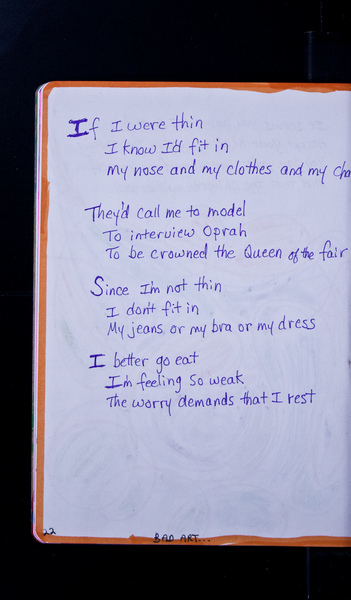 If I were thin
I know I'd fit in
My nose and my clothes and my
They'd call me to model
To interview Oprah
To be crowned the Queen of the fair
Since Im not thin
I don't fit in
My jeans or my bra or my dress
I better go eat
I'm feeling so weak
The worry demands that I rest
22
BAD ART...